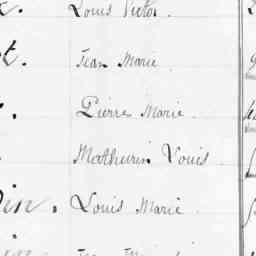 Louis Victor
Jean Marie
Pierre Marie
Mathurin Louis
Louis Marie